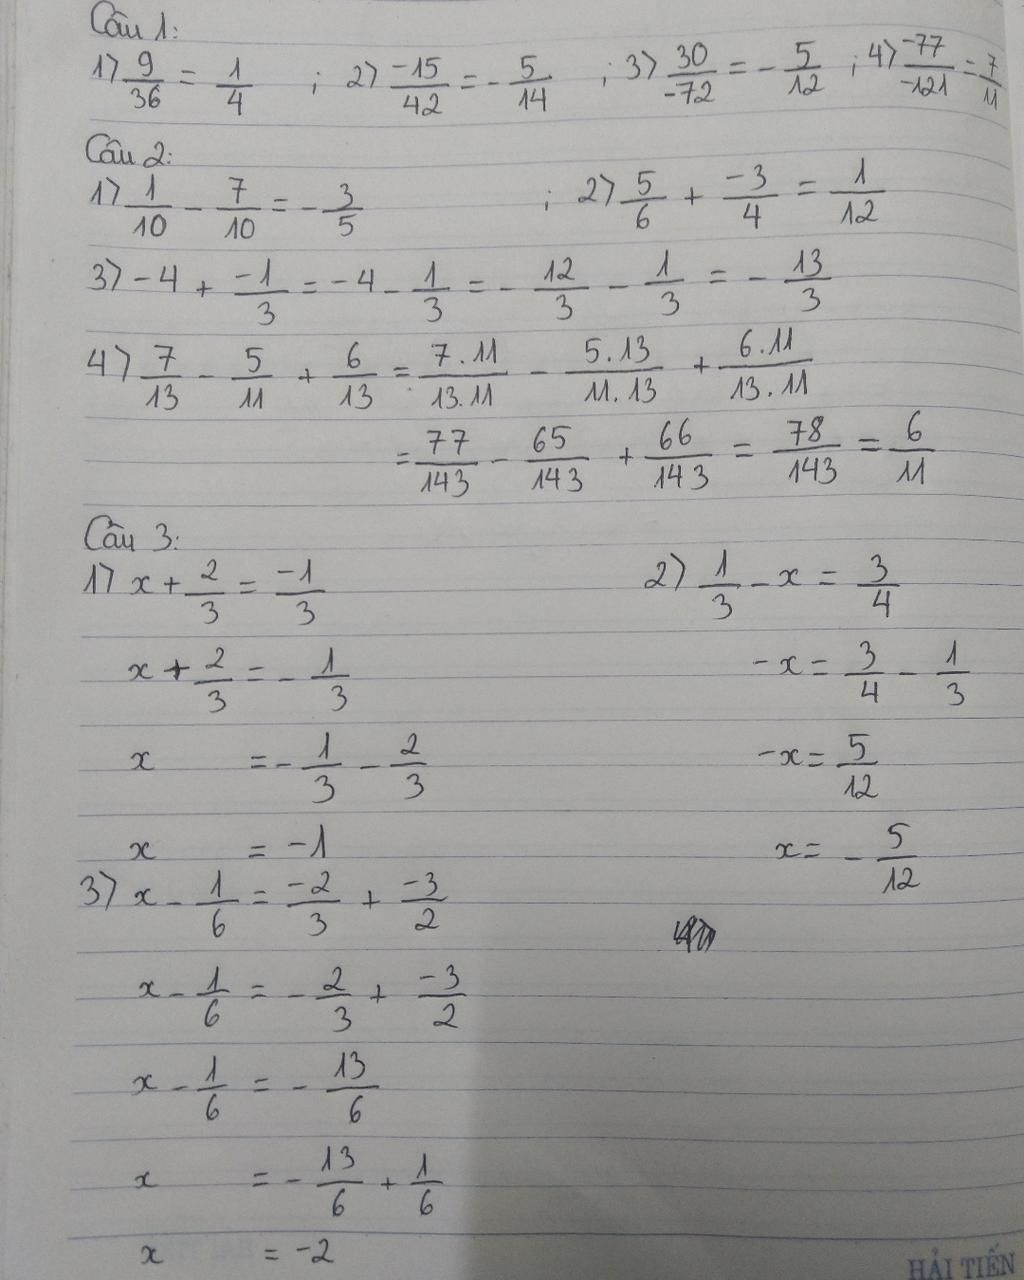 Câu 1:
1) 9/36 = 1/4 ; 2) -15/42 = - 5/14 ; 3) 30/-72 = - 5/12 ; 4) -77/-121 = 7/11
Câu 2:
1) 1/10 - 7/10 = - 3/5 ; 2) 5/6 + -3/4 = 1/12
3) -4 + -1/3 = -4 - 1/3 = - 12/3 - 1/3 = - 13/3
4) 7/13 - 5/11 + 6/13 = 7.11/13.11 - 5.13/11.13 + 6.11/13.11
= 77/143 - 65/143 + 66/143 = 78/143 = 6/11
Câu 3:
1) x + 2/3 = -1/3
x + 2/3 = - 1/3
x = - 1/3 - 2/3
x = -1
2) 1/3 - x = 3/4
-x = 3/4 - 1/3
-x = 5/12
x = - 5/12
3) x - 1/6 = -2/3 + -3/2
x - 1/6 = - 2/3 + -3/2
x - 1/6 = - 13/6
x = - 13/6 + 1/6
x = -2
HẢI TIẾN